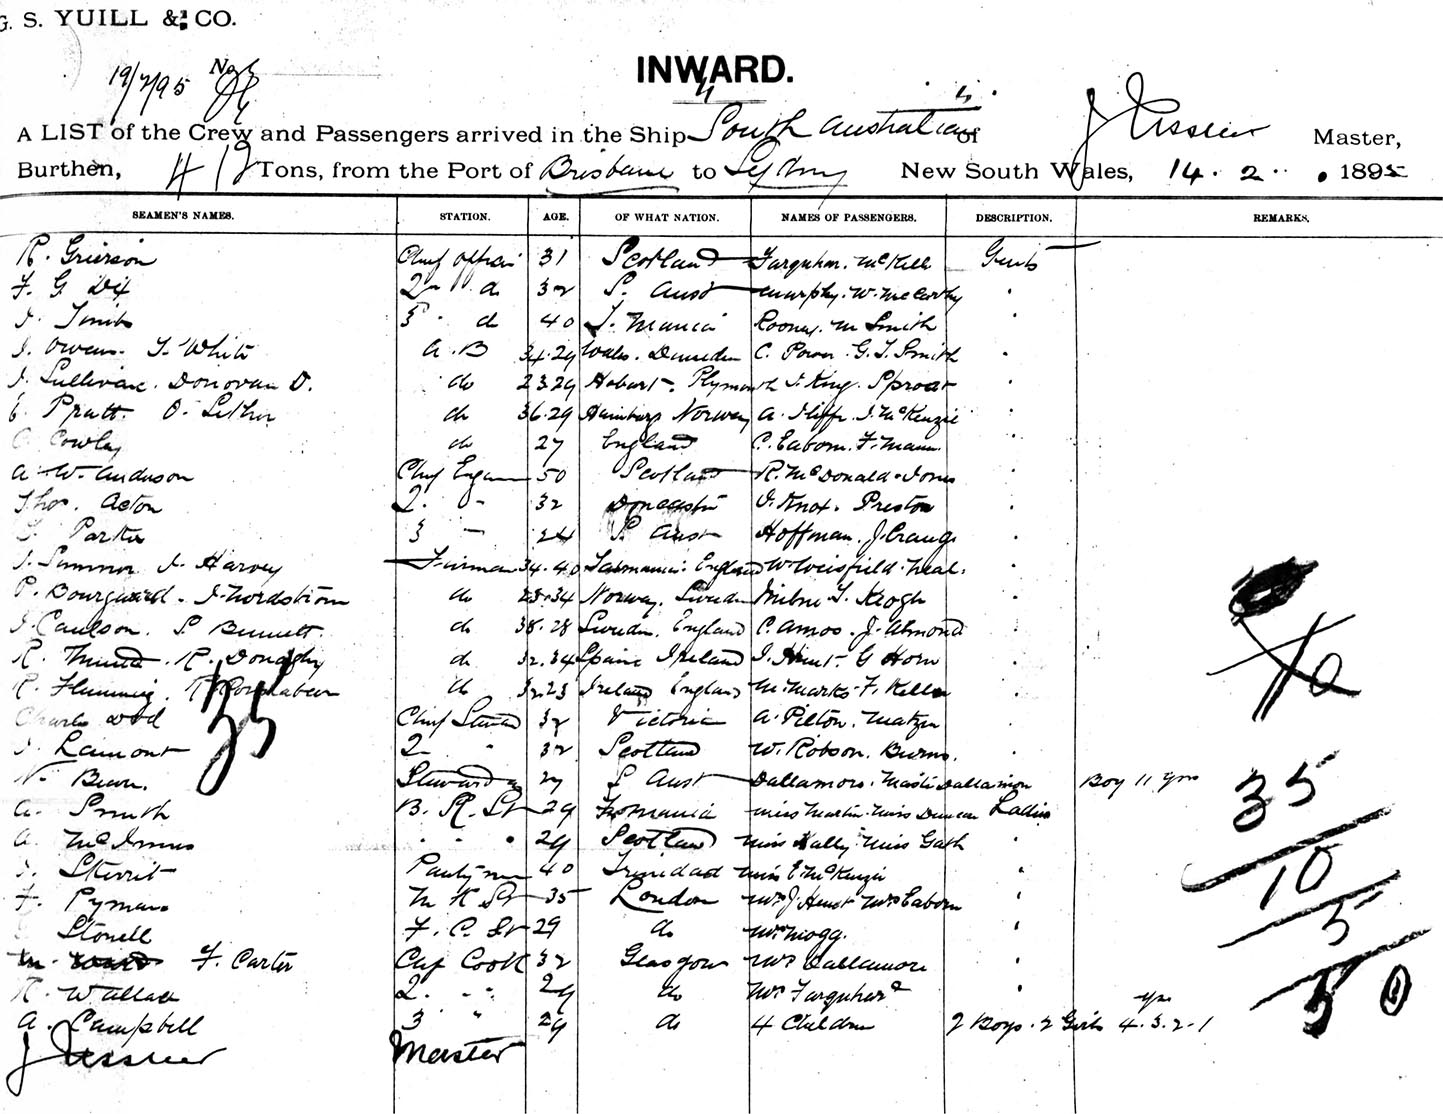 G. S. YUILL & CO.
19/2/95 No
INWARD.
A LIST of the Crew and Passengers arrived in the Ship South Australian of J Master,
Burthen, 412 Tons, from the Port of Brisbane to Sydney New South Wales, 14. 2. 1895
SEAMEN'S NAMES. STATION. AGE. OF WHAT NATION. NAMES OF PASSENGERS. DESCRIPTION. REMARKS.
R. Grierson Chief Officer 31 Scotland Farquhar. McKell Gents
F. G. Dix 2 " do 32 S. Aust Murphy. W. McCarthy "
3 " do 40 T. Mania Rooney. M Smith "
J. Owens. T. White A.B 34.29 Wales. Dunedin C. Power. G. T. Smith "
J. Sullivan. Donovan D. do 23.29 Hobart. Plymouth J. King. Sproat "
E. Pratt. O. do 36.29 Hamburg Norway A. Iliffe. J. McKenzie "
C. Cowley do 27 England C. Eaborn. F. Mann. "
A. W. Anderson Chief Engin 50 Scotland R. McDonald. Jones "
Thos. Acton 2. " 32 Doncaster J. Knox. Preston "
Parker 3 — 24 S. Aust Hoffman. J. "
J. J. Harvey Fireman 34.40 Tasmania. England W. Weisfield. Neal. "
P. J. Nordstrom do 23.34 Norway. Sweden Milne T. Keogh "
J. S. Bennett. do 38.28 Sweden. England C. Amos. J. Almond "
R. R. Donaghy do 32.34 Spain Ireland J. Hunt. G Horn "
R. Flemming. do 32.23 Ireland England M. Marks. F. Keller "
Charles Chief Steward 32 Victoria A. Pilton. "
J. Lamont 2 " 32 Scotland W. Robson. Burns. "
N. Stewardess 27 S Aust Dallamore. Master Dallamore Boy 11 yrs
A. Smith B. R. St 29 Tasmania Miss Martin. Miss Duncan Ladies
A. McInnes " " " 29 Scotland Miss Hally Miss Gath "
J. Pantryman 40 Trinidad Miss E McKenzie "
F. Pyman M. R. St 35 London Mrs J Hunt Mrs Eaborn "
Stonell F. C. St 29 do Mrs Mogg. "
F. Carter Chief Cook 32 Glasgow Mrs Dallamore "
R. Wallace 2. " " 29 do Mrs Farquhar "
A. Campbell 3 " 29 do 4 Children 2 Boys. 2 Girls 4. 3. 2. 1 yrs
J Master
35
35
10
5
50